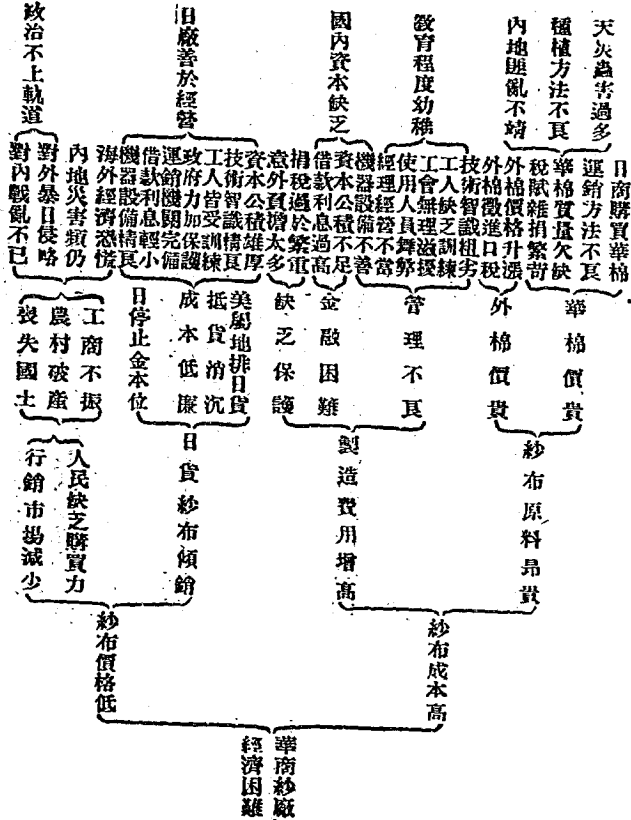 天災蟲害過多
種植方法不良
內地匪亂不靖
教育程度幼稚
國內資本缺乏
日廠善於經營
政治不上軌道
日商購買華棉
運銷方法不良
華棉質量欠缺
稅賦雜捐繁苛
外棉價格升漲
外棉徵進口稅
技術智識粗劣
工人缺乏訓練
工會無理滋擾
使用人員舞弊
經理經營不當
機器設備不善
資本公積不足
借款利息過高
捐稅過於繁重
意外負擔太多
資本公積雄厚
技術智識精良
工人皆受訓練
政府力加保護
運銷機關完備
借款利息輕小
機器設備精良
海外經濟恐慌
內地災害頻仍
對外暴日侵略
對內戰亂不已
華棉價貴
外棉價貴
管理不良
金融困難
缺乏保護
美屬地排日貨
抵貨消沉
成本低廉
日停止金本位
工商不振
農村破產
喪失國土
紗布原料昂貴
製造費用增高
日貨紗布傾銷
人民缺乏購買力
行銷市場減少
紗布成本高
紗布價格低
華商紗廠
經濟困難